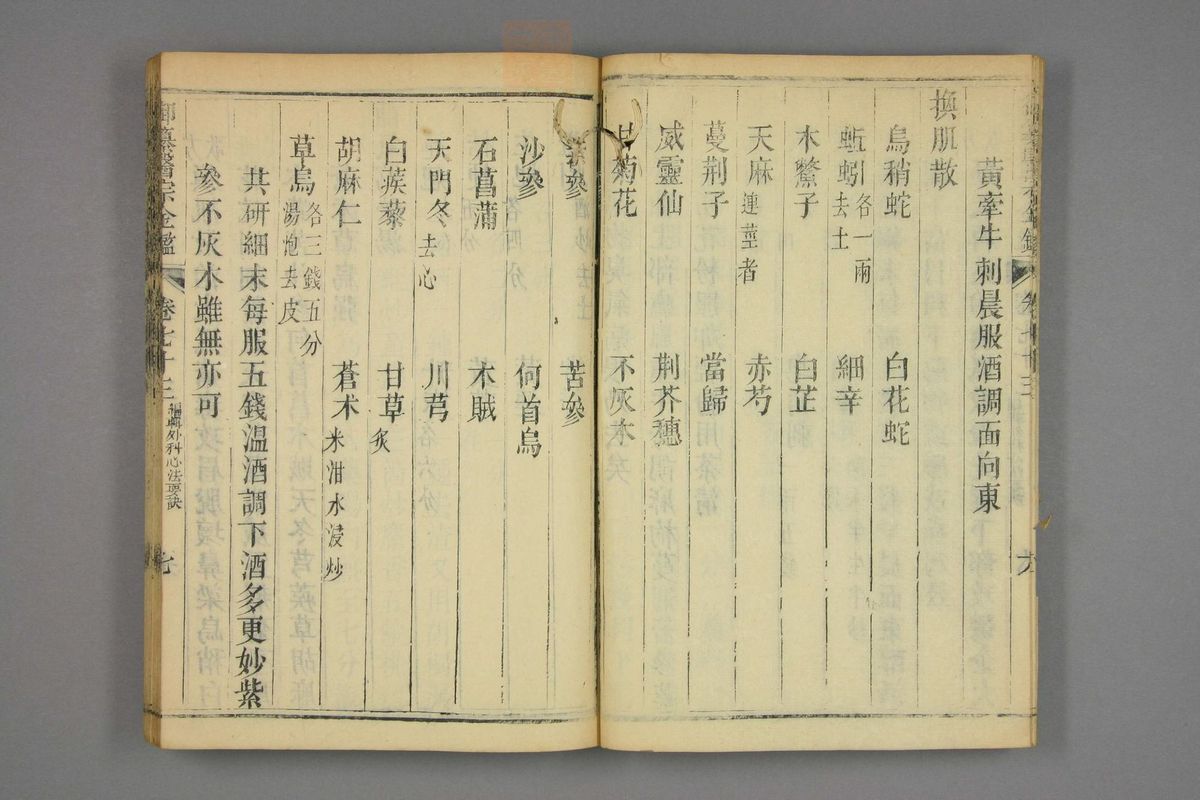 黃牽牛刺晨服酒調面向東
換肌散
烏稍蛇　白花蛇
蚯蚓各一兩去土　細辛
木鱉子　白芷
天麻連莖者　赤芍
蔓荆子　當歸
威靈仙　荆芥穗
甘菊花　不灰木
紫參　苦參
沙參　何首烏
石菖蒲　木賊
天門冬去心　川芎
白蒺藜　甘草炙
胡麻仁　蒼术米泔水浸炒
草烏各三錢五分湯炮去皮
共研細末每服五錢温酒調下酒多更妙紫
參不灰木雖無亦可
御纂醫宗金鑑　卷七十三　編輯外科心法要訣　七